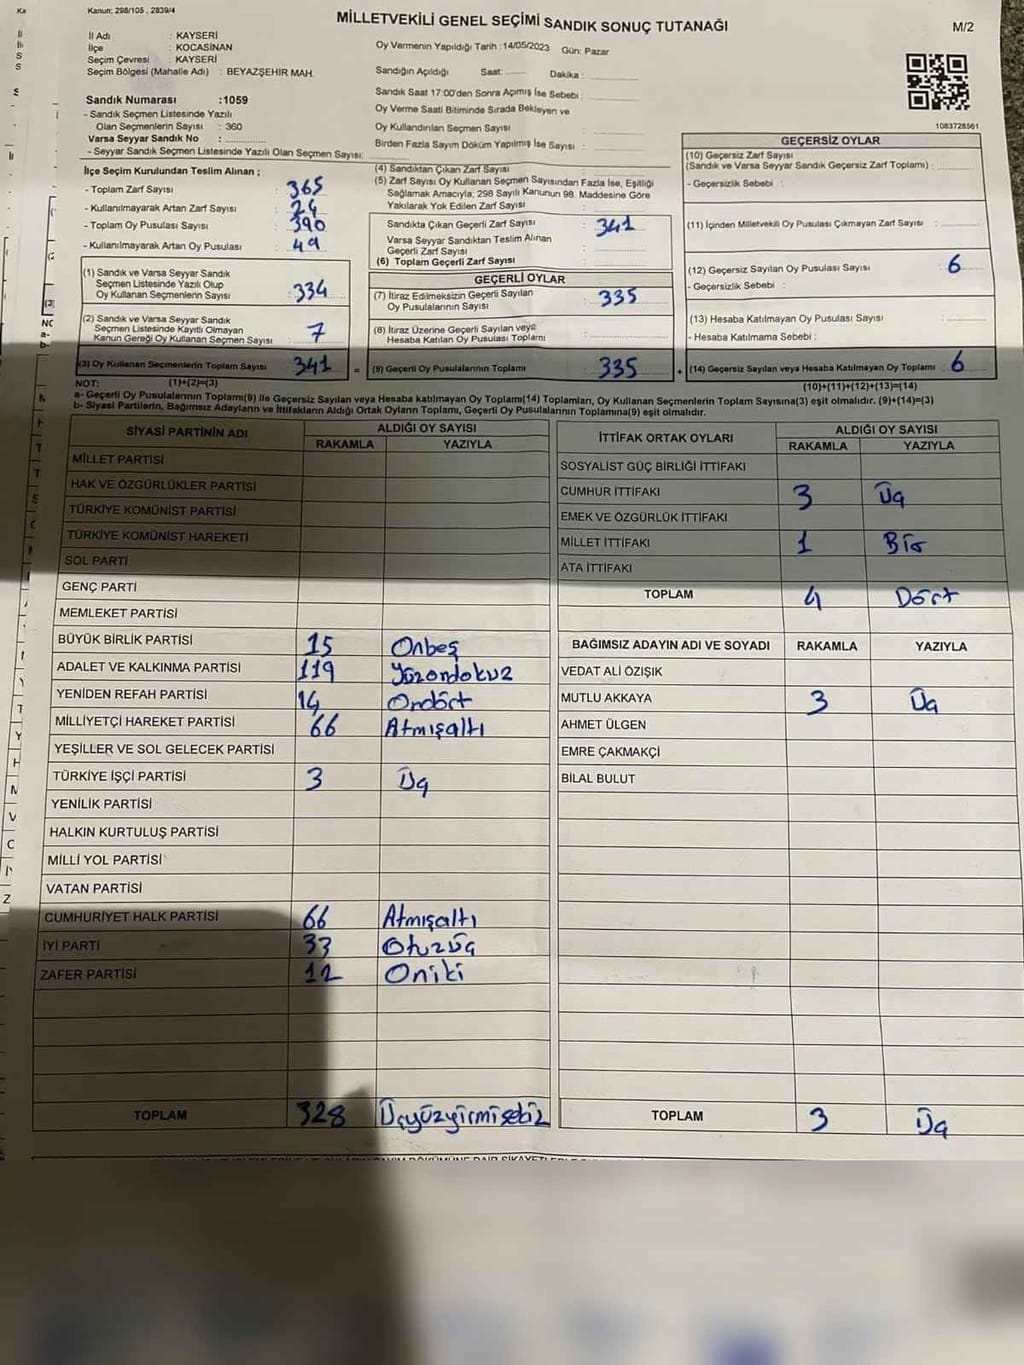 Kanun; 298/105 , 2839/4
MİLLETVEKİLİ GENEL SEÇİMİ SANDIK SONUÇ TUTANAĞI
M/2
İl Adı : KAYSERİ
İlçe : KOCASİNAN
Seçim Çevresi : KAYSERİ
Seçim Bölgesi (Mahalle Adı) : BEYAZŞEHİR MAH.
Sandık Numarası :1059
- Sandık Seçmen Listesinde Yazılı
Olan Seçmenlerin Sayısı : 360
Varsa Seyyar Sandık No :
- Seyyar Sandık Seçmen Listesinde Yazılı Olan Seçmen Sayısı:
Oy Vermenin Yapıldığı Tarih :14/05/2023 Gün: Pazar
Sandığın Açıldığı Saat: Dakika :
Sandık Saat 17:00'den Sonra Açımış İse Sebebi :
Oy Verme Saati Bitiminde Sırada Bekleyen ve
Oy Kullandırılan Seçmen Sayısı :
Birden Fazla Sayım Döküm Yapılmış İse Sayısı :
1083728561
İlçe Seçim Kurulundan Teslim Alınan ;
- Toplam Zarf Sayısı : 365
- Kullanılmayarak Artan Zarf Sayısı : 24
- Toplam Oy Pusulası Sayısı : 390
- Kullanılmayarak Artan Oy Pusulası : 49
(1) Sandık ve Varsa Seyyar Sandık
Seçmen Listesinde Yazılı Olup
Oy Kullanan Seçmenlerin Sayısı : 334
(2) Sandık ve Varsa Seyyar Sandık
Seçmen Listesinde Kayıtlı Olmayan
Kanun Gereği Oy Kullanan Seçmen Sayısı : 7
(3) Oy Kullanan Seçmenlerin Toplam Sayısı 341 =
(4) Sandıktan Çıkan Zarf Sayısı :
(5) Zarf Sayısı Oy Kullanan Seçmen Sayısından Fazla İse, Eşitliği
Sağlamak Amacıyla; 298 Sayılı Kanunun 98. Maddesine Göre
Yakılarak Yok Edilen Zarf Sayısı :
Sandıkta Çıkan Geçerli Zarf Sayısı : 341
Varsa Seyyar Sandıktan Teslim Alınan
Geçerli Zarf Sayısı :
(6) Toplam Geçerli Zarf Sayısı :
GEÇERLİ OYLAR
(7) İtiraz Edilmeksizin Geçerli Sayılan
Oy Pusulalarının Sayısı : 335
(8) İtiraz Üzerine Geçerli Sayılan veya
Hesaba Katılan Oy Pusulası Toplamı :
(9) Geçerli Oy Pusulalarının Toplamı : 335 +
GEÇERSİZ OYLAR
(10) Geçersiz Zarf Sayısı
(Sandık ve Varsa Seyyar Sandık Geçersiz Zarf Toplamı) :
- Geçersizlik Sebebi :
(11) İçinden Milletvekili Oy Pusulası Çıkmayan Zarf Sayısı :
(12) Geçersiz Sayılan Oy Pusulası Sayısı : 6
- Geçersizlik Sebebi :
(13) Hesaba Katılmayan Oy Pusulası Sayısı :
- Hesaba Katılmama Sebebi :
(14) Geçersiz Sayılan veya Hesaba Katılmayan Oy Pusulası Toplamı : 6
NOT: (1)+(2)=(3) (10)+(11)+(12)+(13)=(14)
a- Geçerli Oy Pusulalarının Toplamı(9) ile Geçersiz Sayılan veya Hesaba katılmayan Oy Pusulası Toplamı(14) Toplamları, Oy Kullanan Seçmenlerin Toplam Sayısına(3) eşit olmalıdır. (9)+(14)=(3)
b- Siyasi Partilerin, Bağımsız Adayların ve İttifakların Aldığı Ortak Oyların Toplamı, Geçerli Oy Pusulalarının Toplamına(9) eşit olmalıdır.
SİYASİ PARTİNİN ADI ALDIĞI OY SAYISI
RAKAMLA YAZIYLA
MİLLET PARTİSİ
HAK VE ÖZGÜRLÜKLER PARTİSİ
TÜRKİYE KOMÜNİST PARTİSİ
TÜRKİYE KOMÜNİST HAREKETİ
SOL PARTİ
GENÇ PARTİ
MEMLEKET PARTİSİ
BÜYÜK BİRLİK PARTİSİ 15 Onbeş
ADALET VE KALKINMA PARTİSİ 119 Yüzondokuz
YENİDEN REFAH PARTİSİ 14 Ondört
MİLLİYETÇİ HAREKET PARTİSİ 66 Atmışaltı
YEŞİLLER VE SOL GELECEK PARTİSİ
TÜRKİYE İŞÇİ PARTİSİ 3 Üç
YENİLİK PARTİSİ
HALKIN KURTULUŞ PARTİSİ
MİLLİ YOL PARTİSİ
VATAN PARTİSİ
CUMHURİYET HALK PARTİSİ 66 Atmışaltı
İYİ PARTİ 33 Otuzüç
ZAFER PARTİSİ 12 Oniki
TOPLAM 328 Üçyüzyirmisebiz
İTTİFAK ORTAK OYLARI ALDIĞI OY SAYISI
RAKAMLA YAZIYLA
SOSYALİST GÜÇ BİRLİĞİ İTTİFAKI
CUMHUR İTTİFAKI 3 Üç
EMEK VE ÖZGÜRLÜK İTTİFAKI
MİLLET İTTİFAKI 1 Bir
ATA İTTİFAKI
TOPLAM 4 Dört
BAĞIMSIZ ADAYIN ADI VE SOYADI RAKAMLA YAZIYLA
VEDAT ALİ ÖZIŞIK
MUTLU AKKAYA 3 Üç
AHMET ÜLGEN
EMRE ÇAKMAKÇİ
BİLAL BULUT
TOPLAM 3 Üç